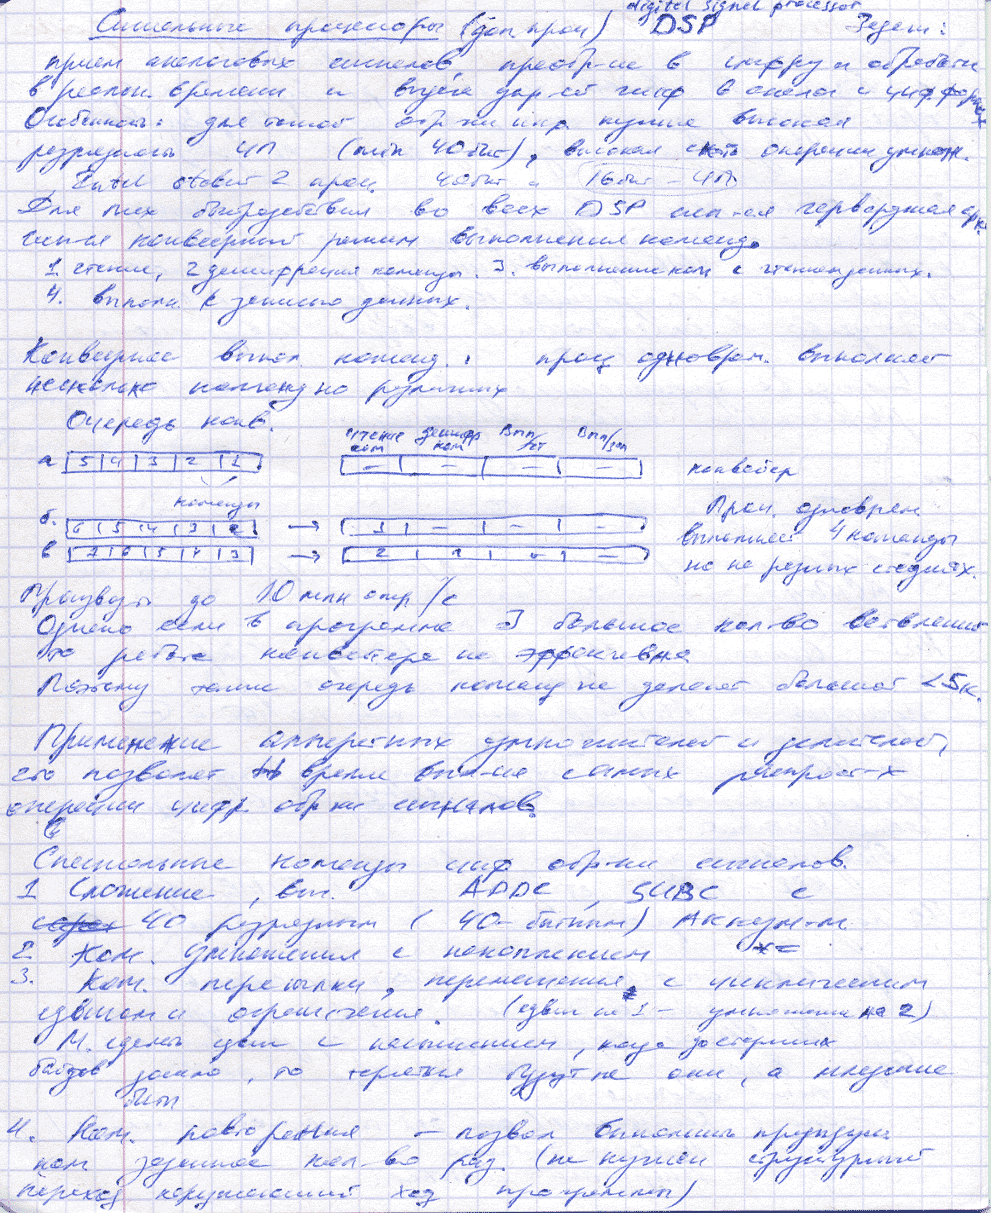 digital signal processor
Сигнальные процессоры (доп проц) DSP Задачи:
прием аналоговых сигналов, преобр-ие в цифру и обработки
в реальн. времени и выдача
Особенность: для точной обр-ки инф. нужна высокая
разрядность ЧП (min 40 бит), высокая ск-ть операции умнож.
2 проц. 40 бит и 16 бит – ЧП
Для max быстродействия во всех DSP
конвеерный режим выполнения команд.
1 чтение, 2 дешифрация команды. 3. выполнение ком с чтением данных.
4. выполн. с записью данных.
Конвеерное выпол. команд: проц одноврем. выполняет
несколько команд на различных
Очередь ком.
чтение ком дешифр ком Впл/чт Впл/зп
а 5 4 3 2 1 – – – – конвейер
команды
б. 6 5 4 3 2 → 1 – – – Проц. одноврем.
выполняет 4 команды
в 7 6 5 4 3 → 2 1 – –
но на разных стадиях.
Производ до 10 млн опер/с
Однако если в программе ∃ большое кол-во ветвлений
то работа конвейера не эффективна
Поэтому очередь команд не делают большой < 5 к.
Применение аппаратных умножителей и делителей,
это позволяет время вып-ия самых распрост-х
операции цифр. обр-ки сигналов.
Специальные команды циф обр-ки сигналов.
1 Сложение, выч. ADDC, SUBC с
40 разрядным (40-битным) Аккумул-м
2 Ком. умножения с накоплением
3. Ком. пересылки, перемещения с циклическим
сдвигом и ограничения. (сдвиг на 1 – умножение на 2)
М. сделать с насыщением, когда достигших
битов, то теряться будут не они, а младшие
биты
4. Ком. повторения – позвол выполнить предыдущ.
ком заданное кол-во раз. (не нужен
переход нарушающий ход программы)